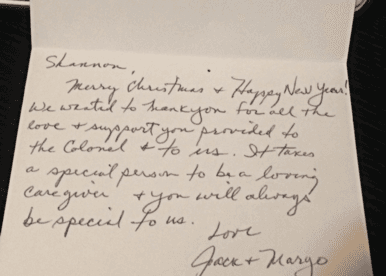 Shannon,
Merry Christmas + Happy New Year!
We wanted to thank you for all the
love + support you provided to
the Colonel + to us. It takes
a special person to be a loving
caregiver + you will always
be special to us.
Love
Jack + Margo